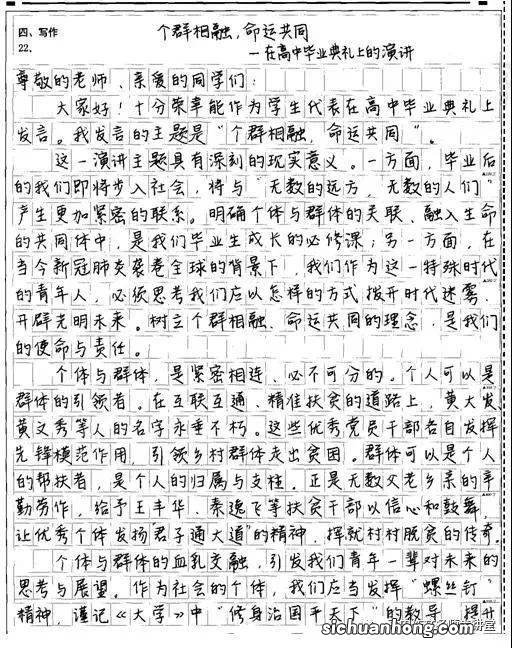 四、写作
22.
个群相融，命运共同
—在高中毕业典礼上的演讲
尊敬的老师、亲爱的同学们：
大家好！十分荣幸能作为学生代表在高中毕业典礼上
发言。我发言的主题是"个群相融，命运共同"。
这一演讲主题具有深刻的现实意义。一方面，毕业后
的我们即将步入社会，将与"无数的远方，无数的人们"
产生更加紧密的联系。明确个体与群体的关联、融入生命
的共同体中，是我们毕业生成长的必修课；另一方面，在
当今新冠肺炎袭卷全球的背景下，我们作为这一特殊时代
的青年人，必须思考我们应以怎样的方式拨开时代迷雾，
开辟光明未来。树立个群相融、命运共同的理念，是我们
的使命与责任。
个体与群体，是紧密相连、必不可分的。个人可以是
群体的引领者。在互联互通、精准扶贫的道路上，黄大发、
黄文秀等人的名字永垂不朽。这些优秀党员干部各自发挥
先锋模范作用，引领乡村群体走出贫困。群体可以是个人
的帮扶者，是个人的归属与支柱。正是无数父老乡亲的辛
勤劳作，给予王丰华、秦逸飞等扶贫干部以信心和鼓舞，
让优秀个体发扬君子通大道"的精神，挥就村村脱贫的传奇。
个体与群体的血乳交融，引发我们青年一辈对未来的
思考与展望。作为社会的个体，我们应当发挥"螺丝钉"
精神，谨记《大学》中"修身治国平天下"的教导，提升
sichuanhong.com